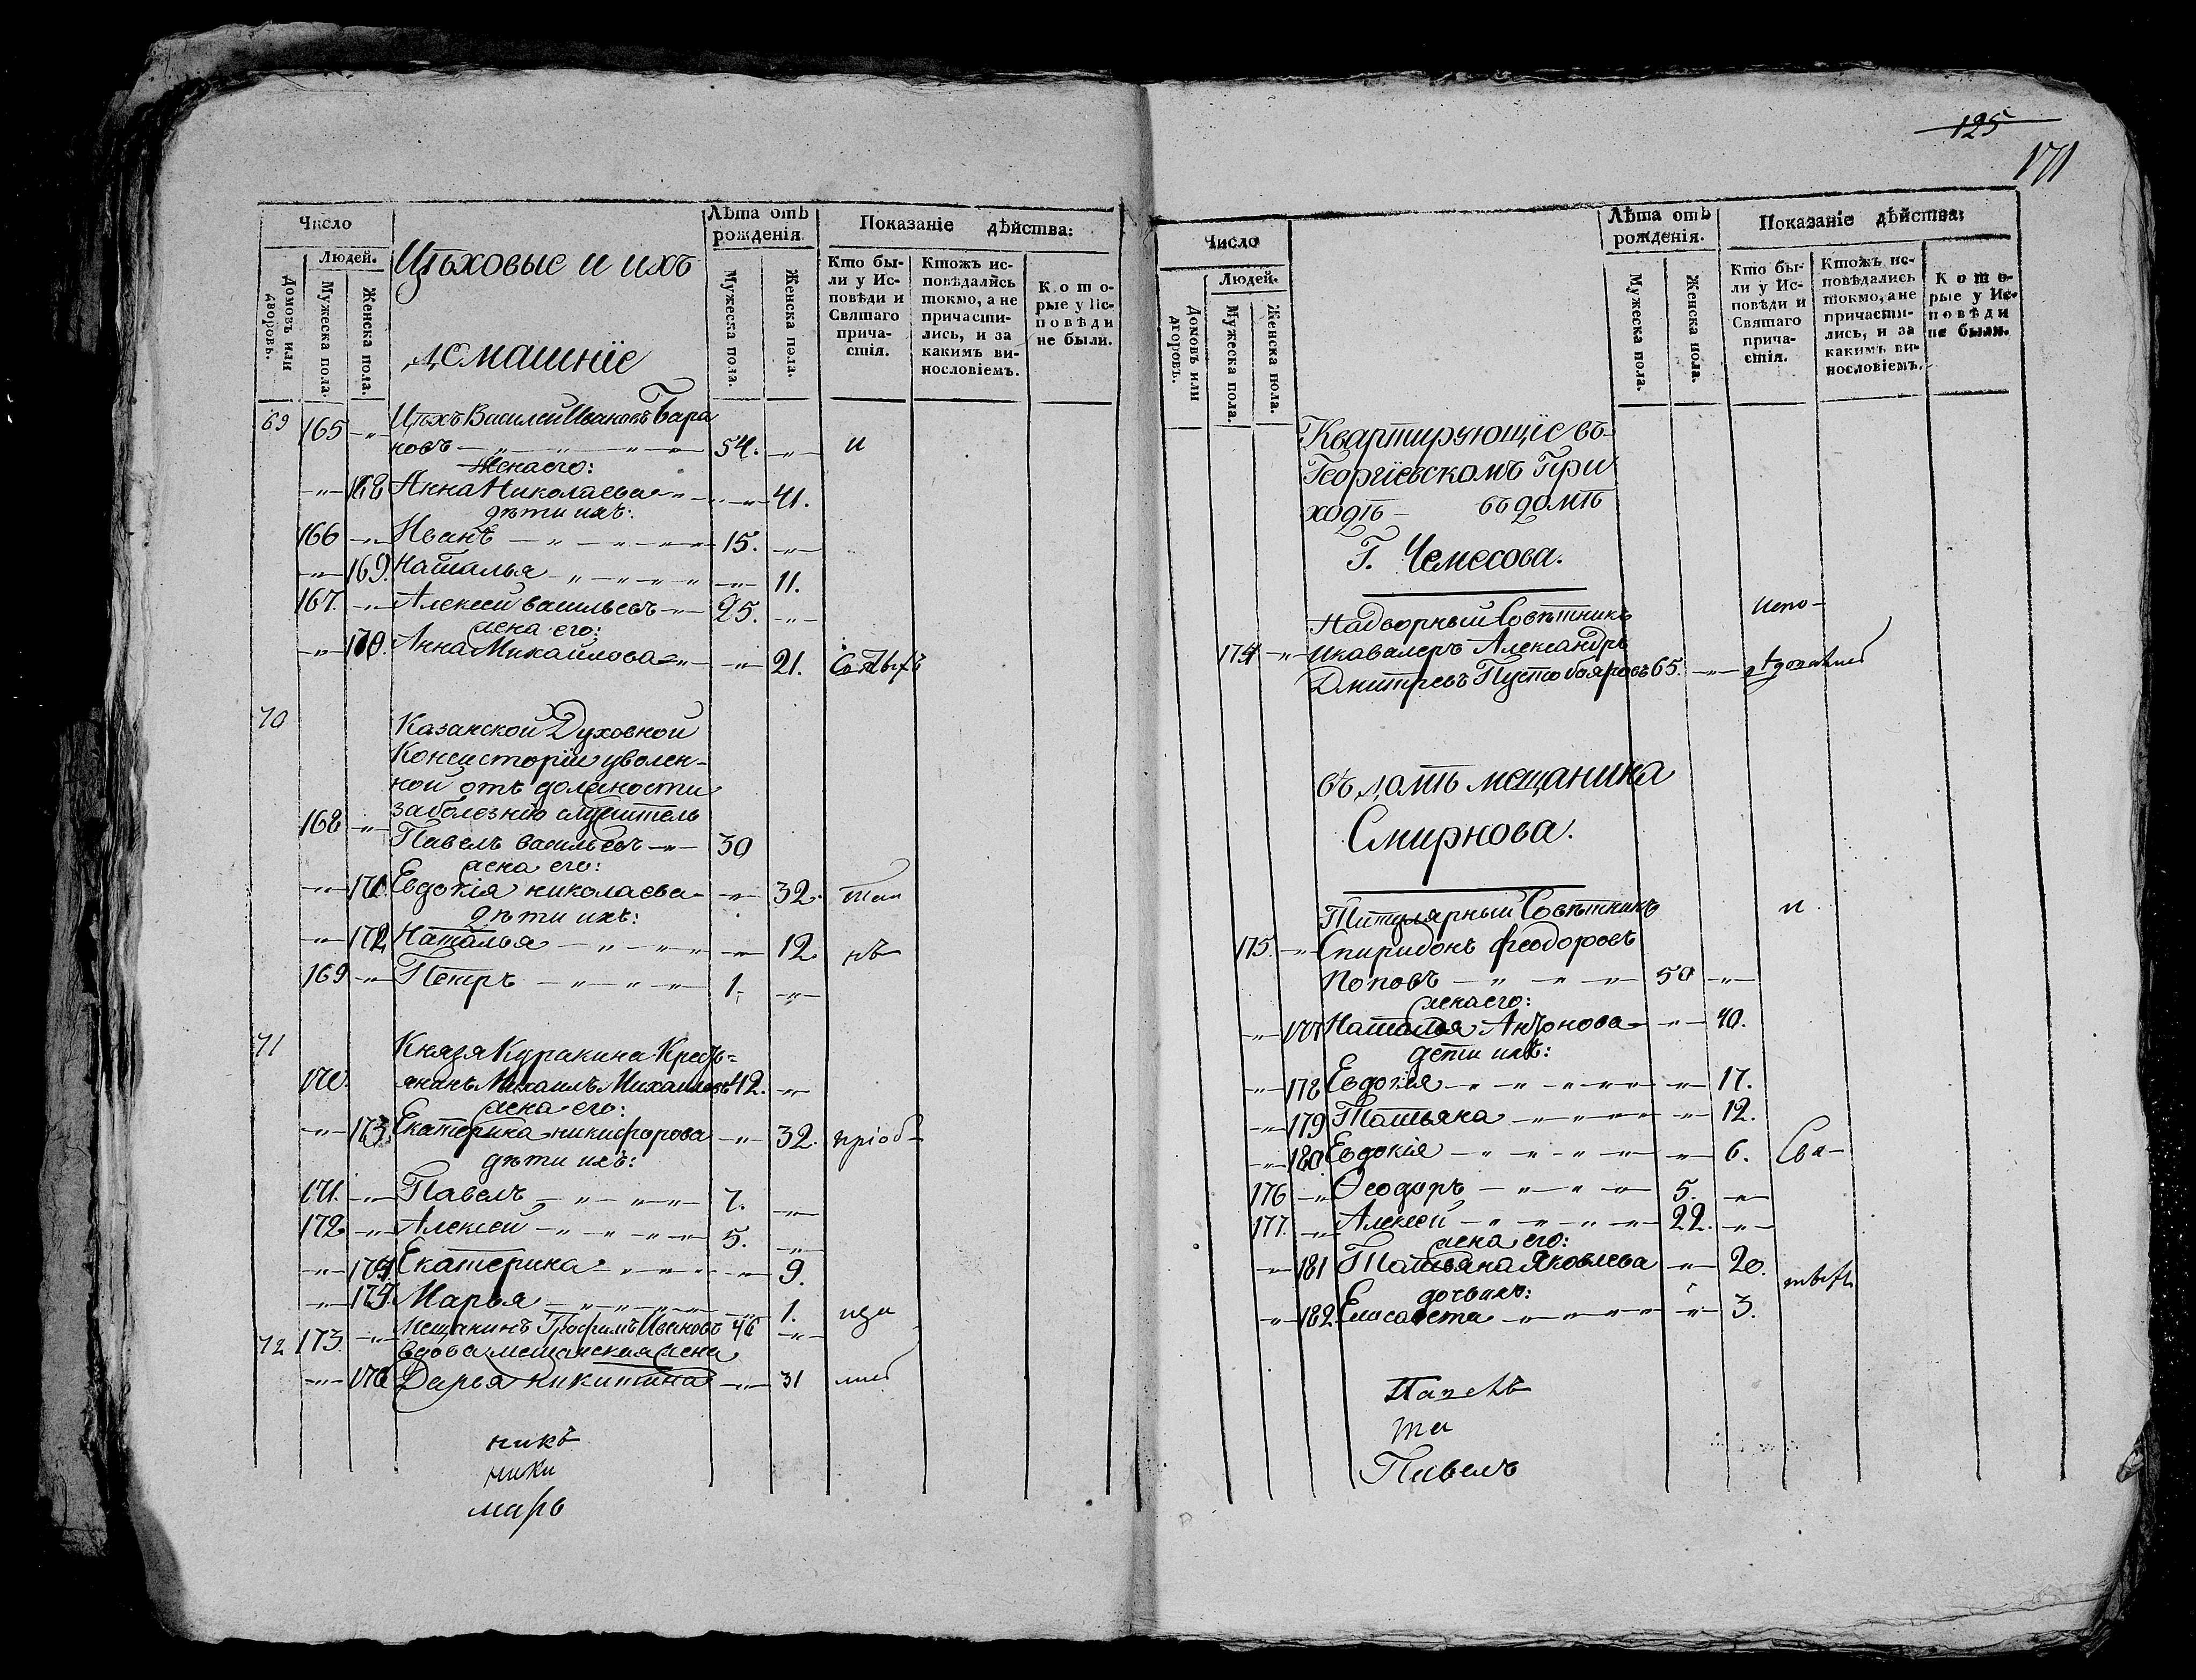 125
171
Число
Людей.
Домовъ или дворовъ.
Мужеска пола.
Женска пола.
Цѣховые и ихъ
домашніе
Лѣта отъ рожденія.
Мужеска пола.
Женска пола.
Показаніе дѣйства:
Кто были у Исповѣди и Святаго причастія.
Ктожъ исповѣдались токмо, а не причастились, и за какимъ винословіемъ.
Которые у Исповѣди не были.
69 165 Цѣхъ Василей Ивановъ Бара
новъ 54. и
Жена его:
168 Анна Николаева 41.
дѣти ихъ:
166 Иванъ 15.
169. Наталья 11.
167. Алексей Васильевъ 25.
жена его:
170. Анна Михайлова 21. Святыхъ
70 Казанской Духовной
Консисторіи уволен-
ной отъ должности
за болезнію служитель
168 Павелъ Васильевъ 30
жена его:
171. Евдокія Николаева 32. таи
дѣти ихъ:
172 Наталья 12. нъ
169 Петръ 1.
71 Князя Куракина Кресть=
170. янинъ Михаилъ Михаиловъ 42.
жена его:
173. Екатерина Никифорова 32. пріоб-
дѣти ихъ:
171. Павелъ 7.
172 Алексей 5.
174 Екатерина 9.
175. Марья 1. ща
72 173. Мещанинъ Трофимъ Ивановъ 46
вдова мещанская жена
176 Дарья Никитина 31 лис
никъ
ники
миръ
Число
Людей.
Домовъ или дворовъ.
Мужеска пола.
Женска пола.
Лѣта отъ рожденія.
Мужеска пола.
Женска пола.
Показаніе дѣйства:
Кто были у Исповѣди и Святаго причастія.
Ктожъ исповѣдались токмо, а не причастились, и за какимъ винословіемъ.
Которые у Исповѣди не были.
Квартирующіе въ
Георгіевскомъ При
ходѣ въ домѣ
Г. Чемесова.
Надворный Совѣтникъ испо-
174 и кавалеръ Александръ
Дмитревъ Пустобояровъ 65.
въ домѣ мещанина
Смирнова.
Титулярный Совѣтникъ и
175. Спиридонъ Феодоровъ
Поповъ 50
жена его:
177 Наталья Антонова 40.
дети ихъ:
178 Евдокія 17.
179 Татьяна 12.
180 Евдокія 6. Свя-
176 Ѳеодоръ 5.
177. Алексей 22.
жена его:
181 Татьяна Яковлева 20. тыхъ
дочь ихъ:
182 Елисавета 3.
та
Павелъ